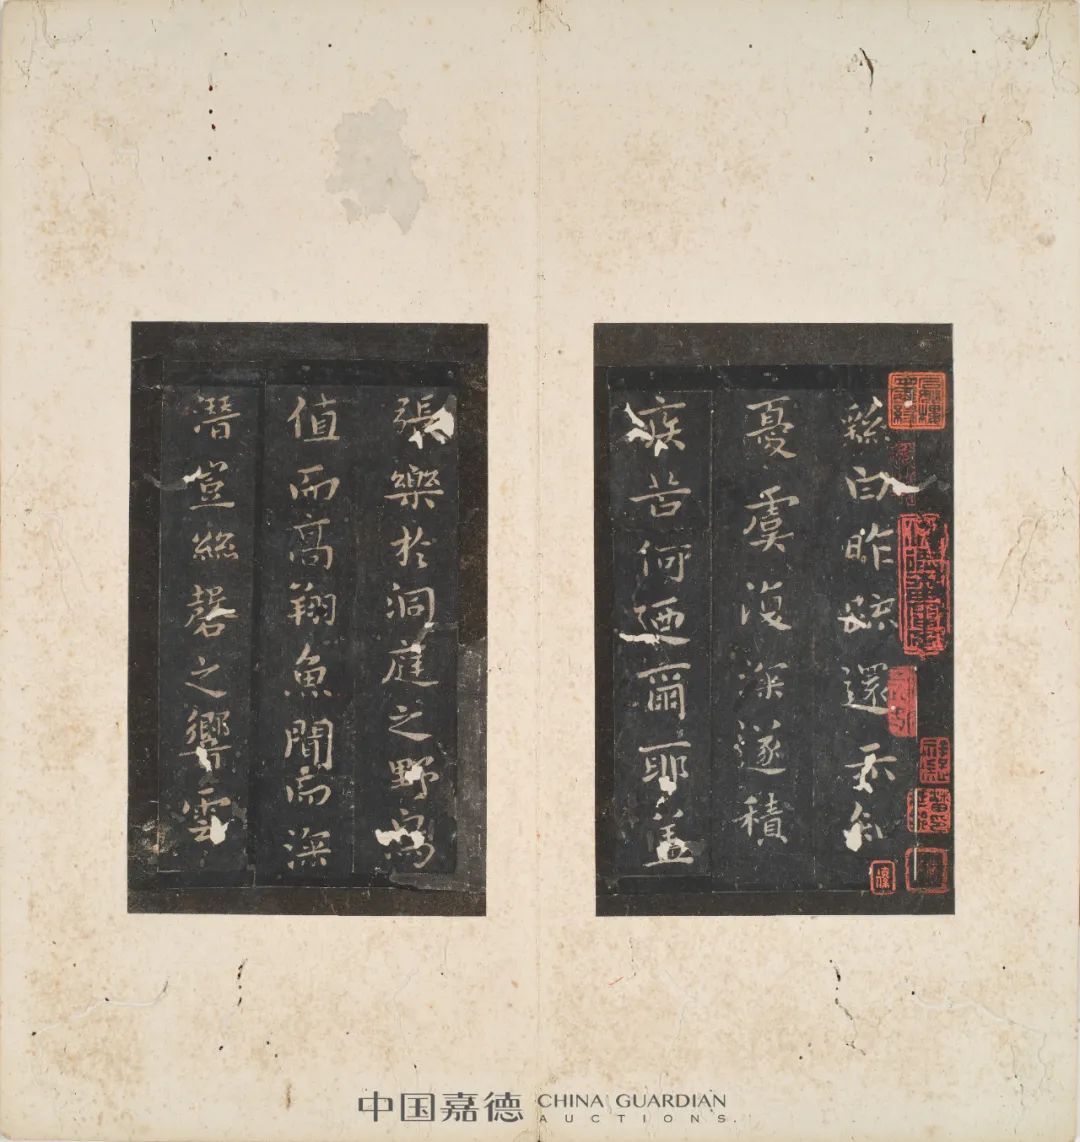 繇白昨疏還示知
憂虞復深遂積
疾苦何廼爾耶蓋
張樂於洞庭之野鳥
值而高翔魚聞而深
潛豈絲磬之響雲
中国嘉德 CHINA GUARDIAN
AUCTIONS